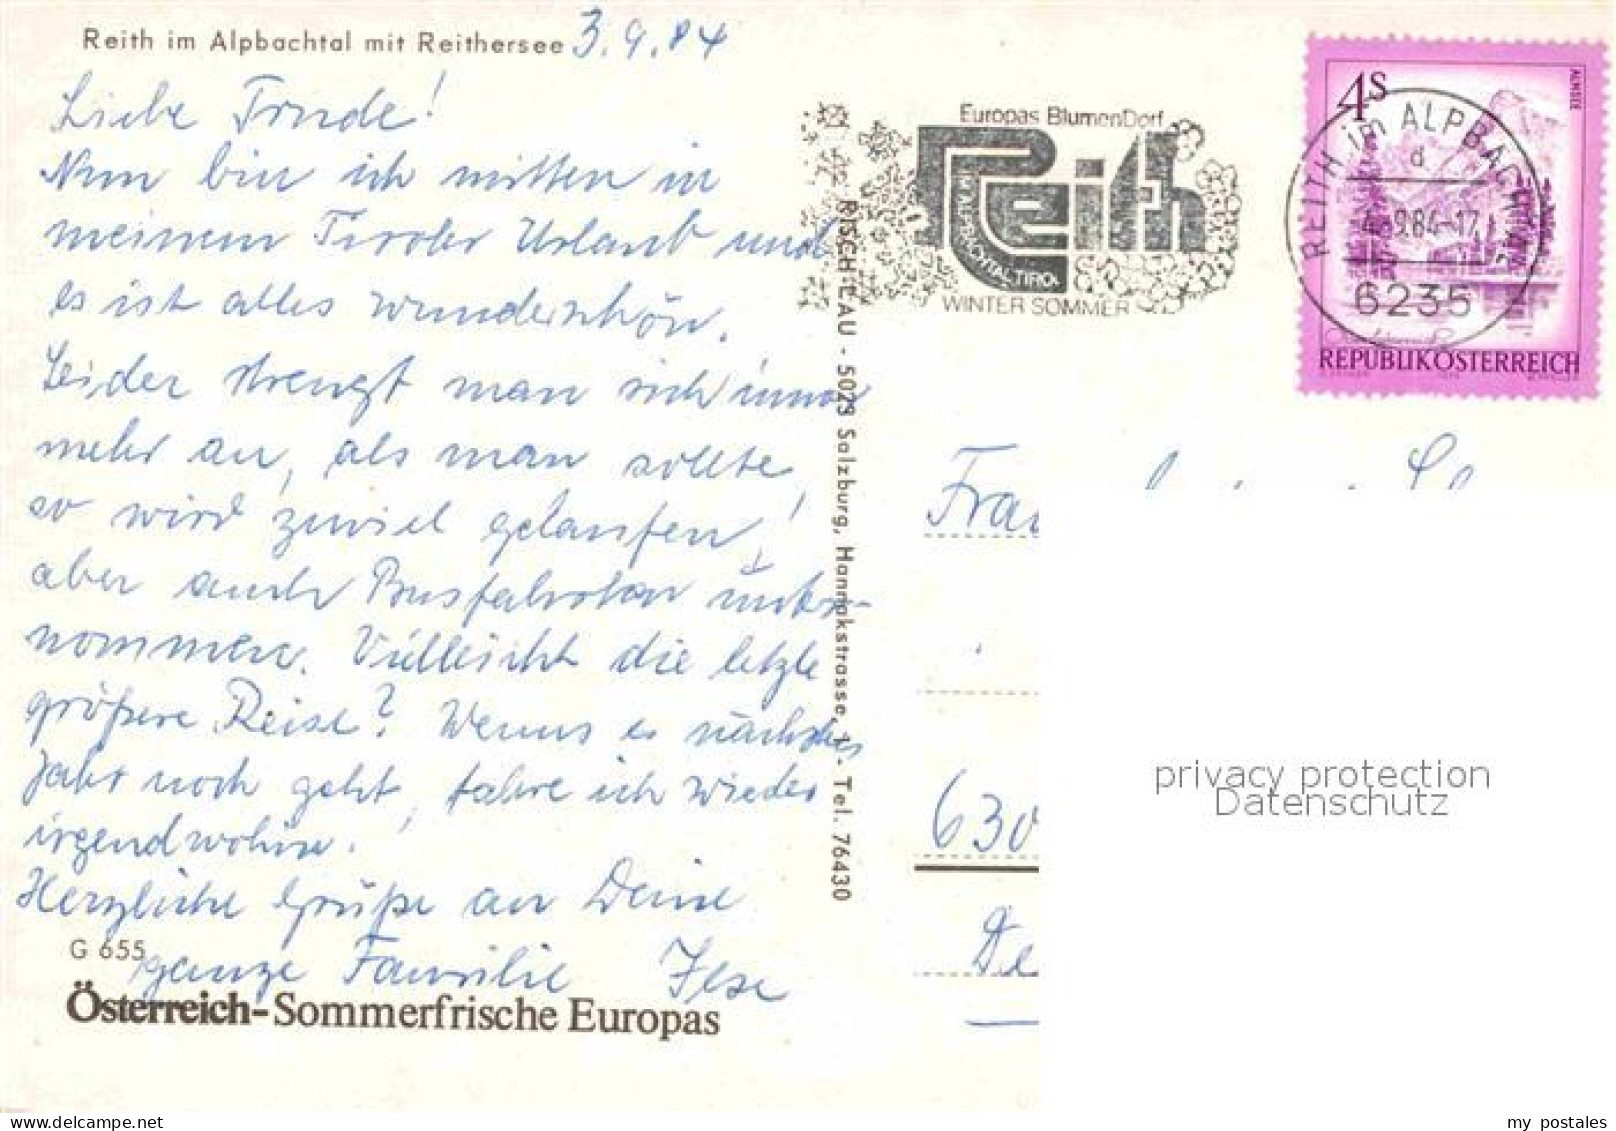 Reith im Alpbachtal mit Reithersee 3.9.84
Liebe Trude!
Nun bin ich mitten in
meinem Tiroler Urlaub und
es ist alles wunderschön.
Leider strengt man sich immer
mehr an, als man sollte,
so wird zuviel gelaufen!
aber auch Busfahrten unter-
nommen. Vielleicht die letzte
größere Reise? Wenns es nächstes
Jahr noch geht, fahre ich wieder
irgendwohin.
Herzliche Grüße an Deine
ganze Familie Ilse
G 655
Österreich-Sommerfrische Europas
RISCH-LAU - 5023 Salzburg, Hannakstrasse, 1 - Tel. 76430
Europas BlumenDorf
Reith
IM ALPBACHTAL TIROL
WINTER SOMMER
4S
ALMSEE
REITH im ALPBACHTAL
d
4.-9.84-17
6235
REPUBLIK ÖSTERREICH
Frau
630
De
privacy protection
Datenschutz
my postales